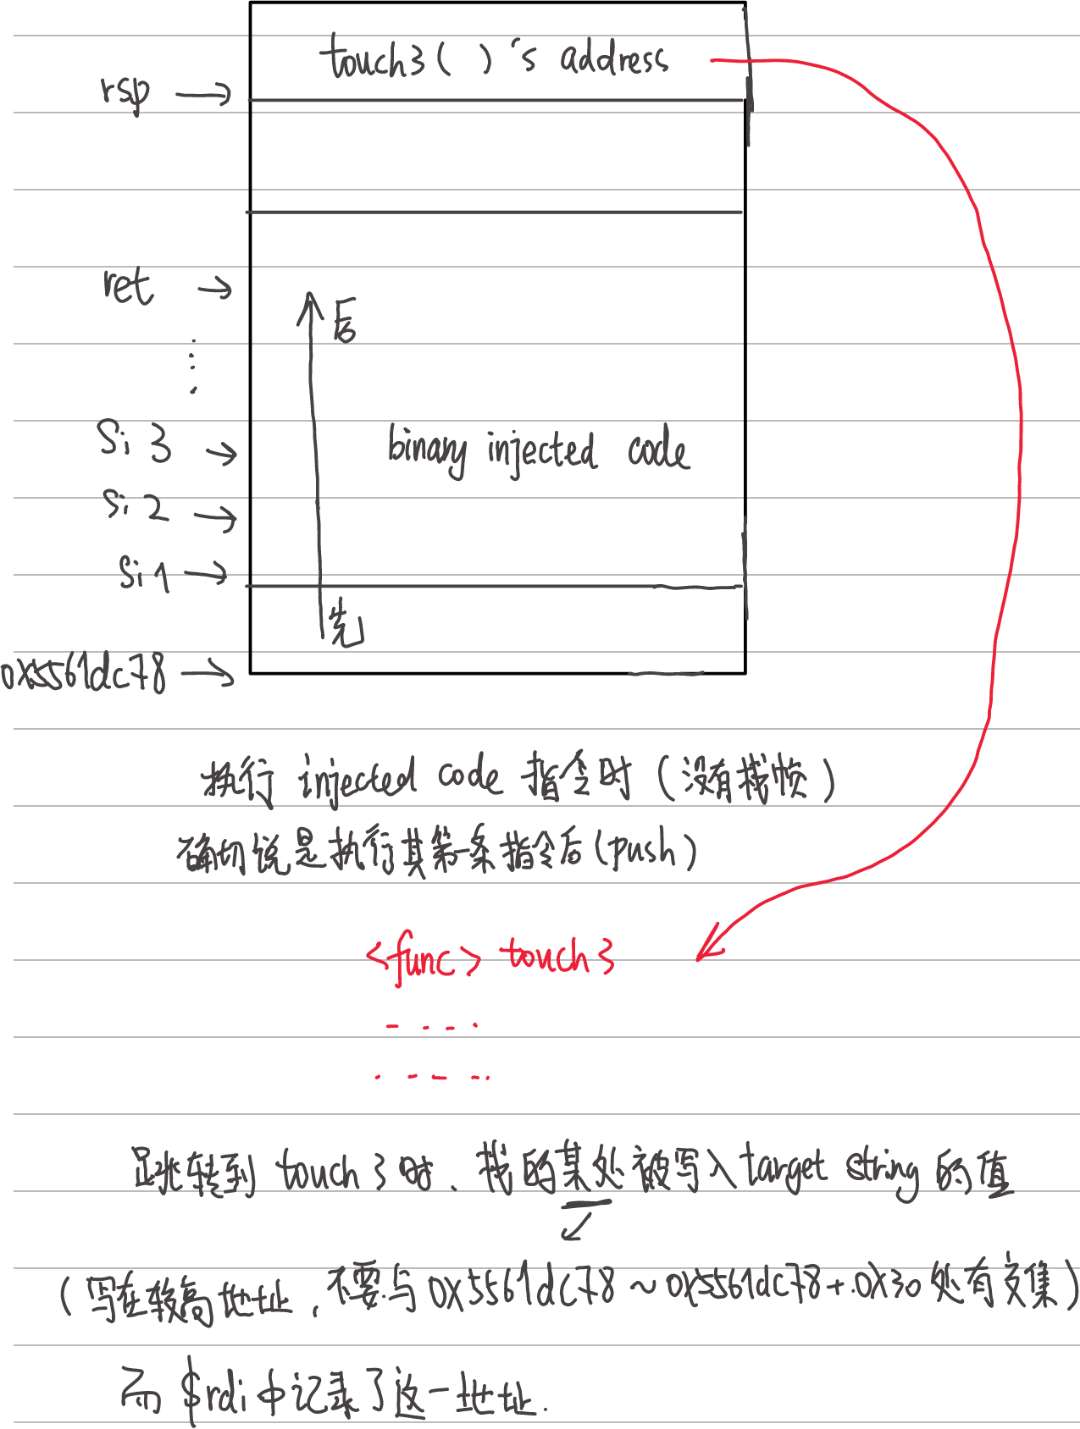 touch3( )'s address
rsp →
ret →
后
Si 3 →
binary injected code
Si 2 →
Si 1 →
先
0x5561dc78 →
执行 injected code 指令时 (没有栈帧)
确切说是执行其第一条指令后 (push)
<func> touch3
跳转到 touch3时、栈的某处被写入target string 的值
(写在较高地址,不要与0x5561dc78 ~ 0x5561dc78+0x30 处有交集)
而 $rdi中记录了这一地址.